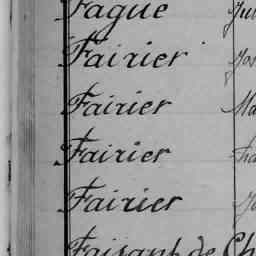 Fague
Fairier
Fairier
Fairier
Fairier
Faisant de Ch